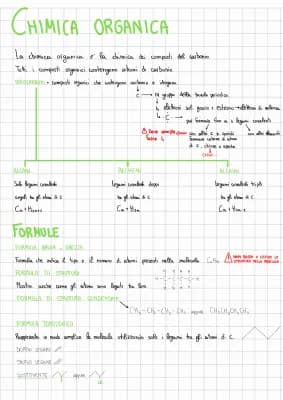 CHIMICA ORGANICA
La chimica organica è la chimica dei composti del carbonio
Tutti i composti organici contengono atomi di carbonio
IDROCARBURI = composti organici che contengono carbonio e idrogeno
C → IV gruppo della tavola periodica
4 elettroni sul guscio + esterno = elettroni di valenza
può formare fino a 4 legami covalenti
con altri C e quindi
con altri elementi
formare catene di atomi
di C, chiuse o aperte
ALCANI
ALCHENI
ALCHINI
Solo legami covalenti
legami covalenti doppi
legami covalenti tripli
singoli tra gli atomi di C
tra gli atomi di C
tra gli atomi di C
CnH2n+2
CnH2n
CnH2n-2
FORMULE
FORMULA BRUTA - GREZZA
Formula che indica il tipo e il numero di atomi presenti nella molecola
FORMULA DI STRUTTURA
Mostra anche come gli atomi sono legati tra loro
FORMULA DI STRUTTURA CONDENSATA
CH3-CH2-CH2-CH3 oppure CH3CH2CH2CH3
FORMULA TOPOLOGICA
Rappresenta in modo semplice la molecola utilizzando solo i legami tra gli atomi di C
DOPPIO LEGAME //
TRIPLO LEGAME ///
SOSTITUENTE oppure